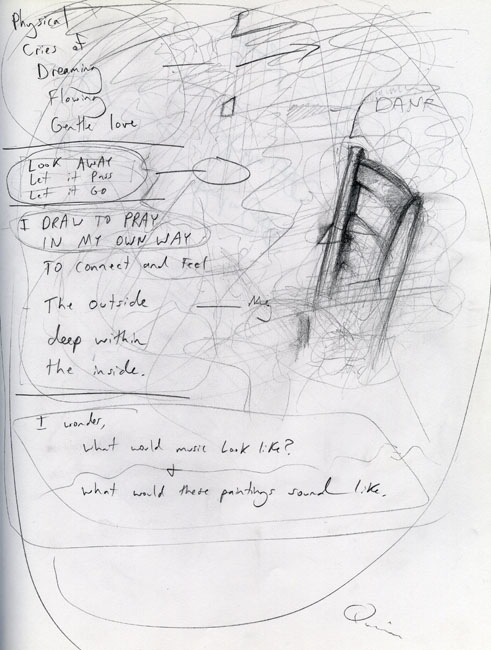 Physical
Cries of
Dreaming
Flowing
Gentle love
LOOK AWAY
Let it Pass
Let it Go
I DRAW TO PRAY
IN MY OWN WAY
TO Connect and Feel
The Outside
deep within
the inside.
I wonder,
what would music look like?
+
what would these paintings sound like.